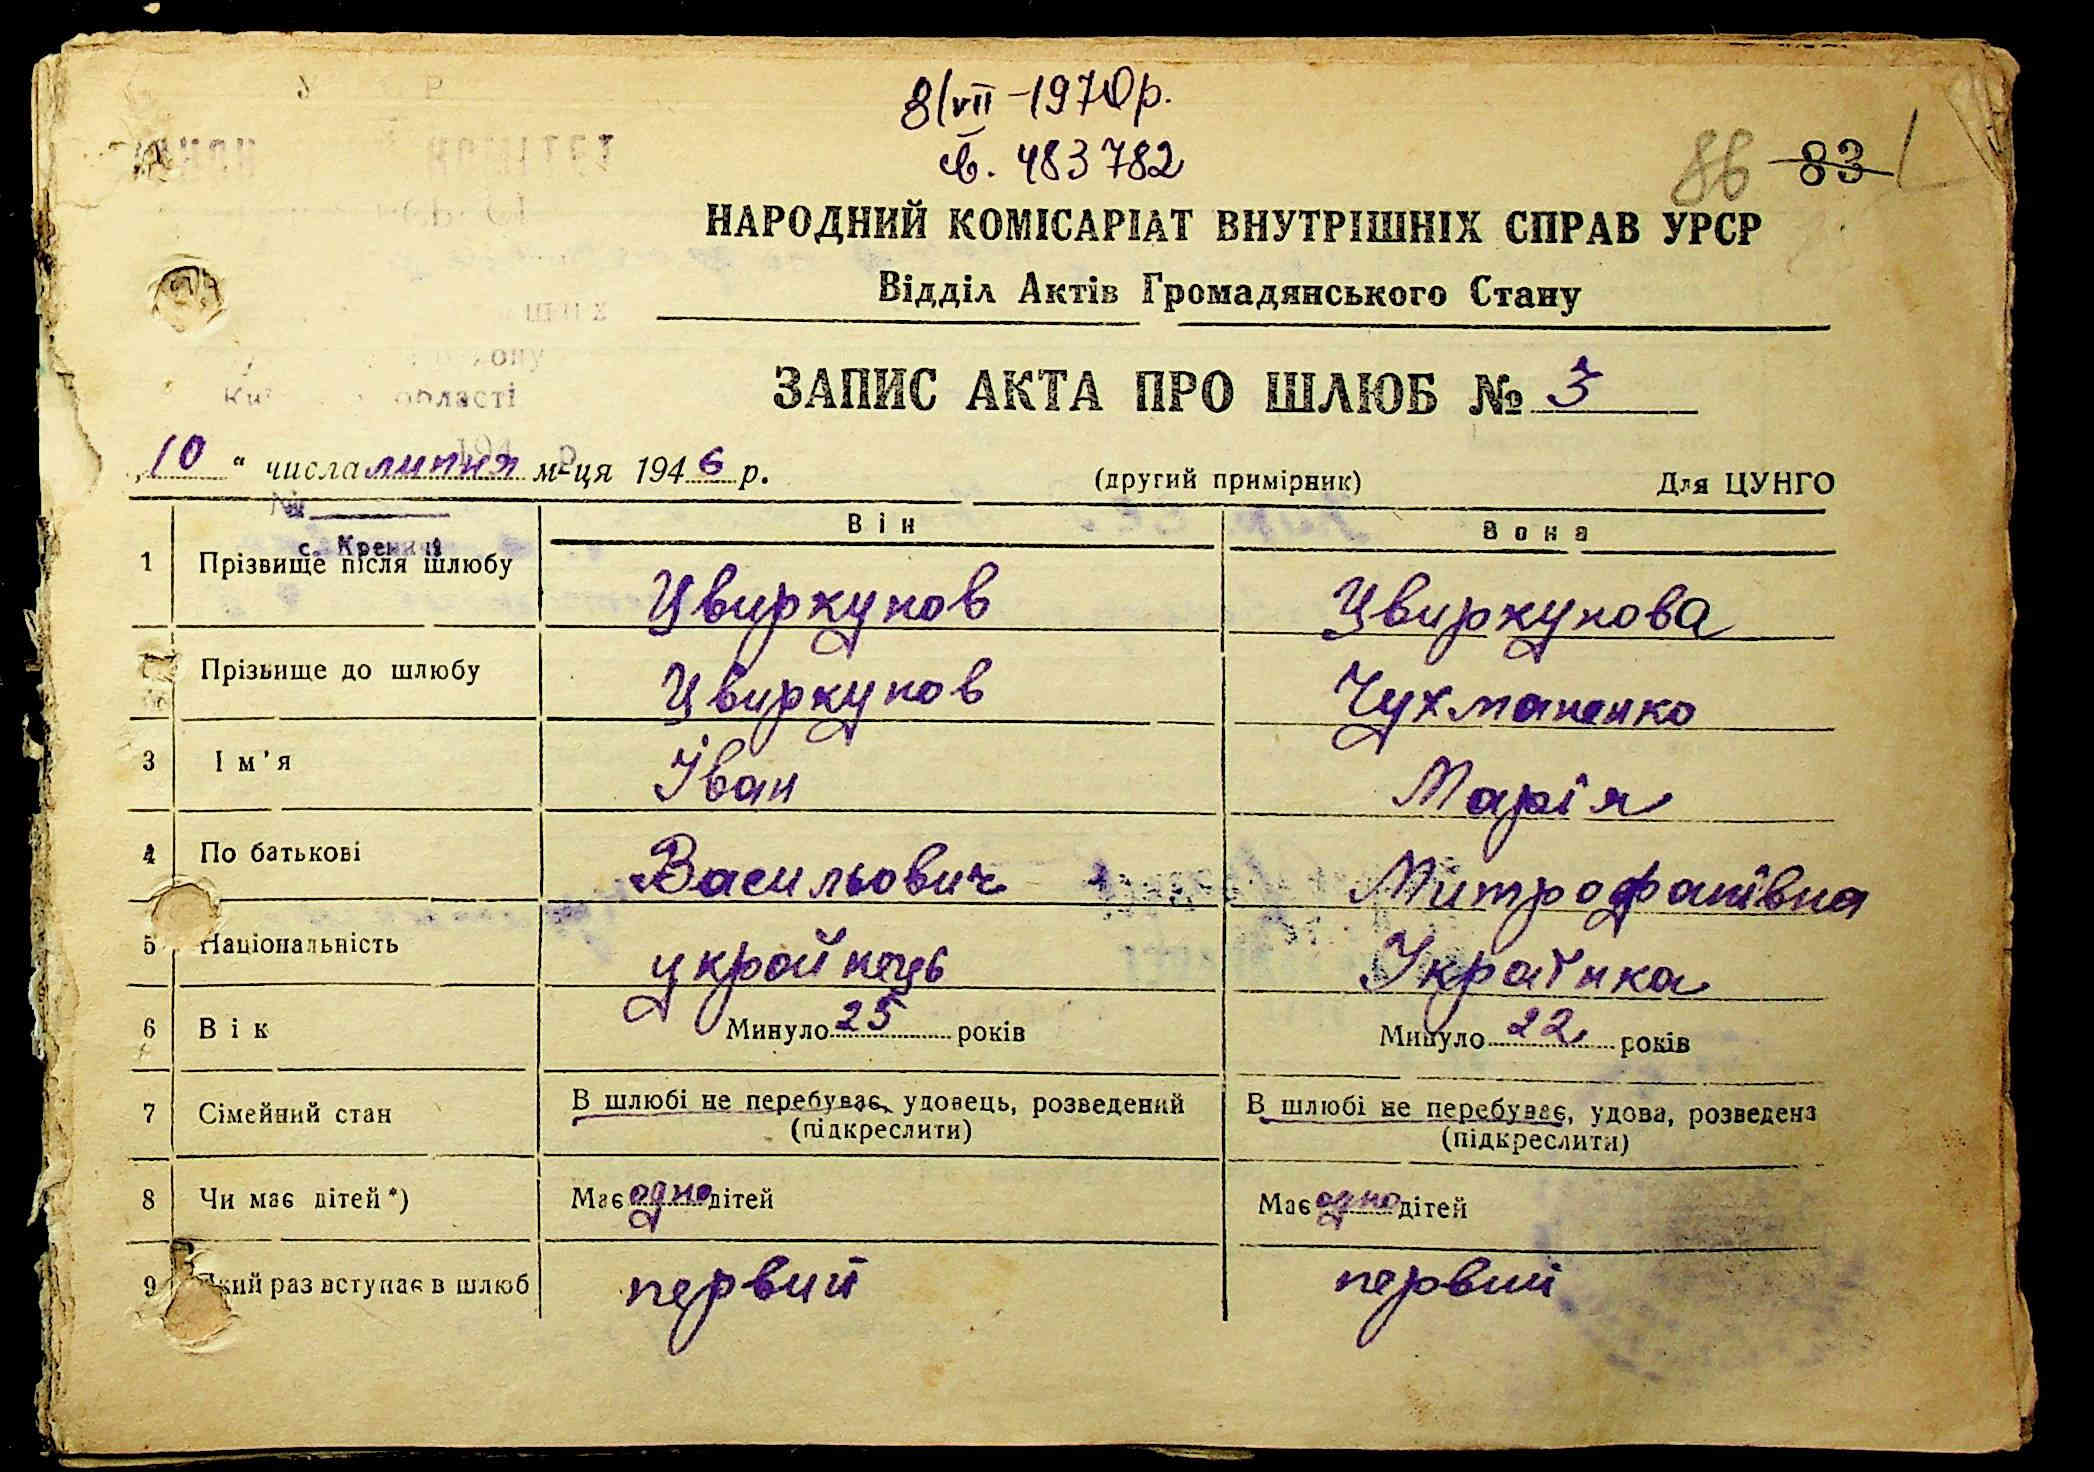 8/VII-1970р.
св. 483782
86 83
НАРОДНИЙ КОМІСАРІАТ ВНУТРІШНІХ СПРАВ УРСР
Відділ Актів Громадянського Стану
області
ЗАПИС АКТА ПРО ШЛЮБ № 3
„10“ числа липня м-ця 1946 р. (другий примірник) Для ЦУНГО
№
Він Вона
с. Креничі
1 Прізвище після шлюбу Цвиркунов Цвиркунова
Прізвище до шлюбу Цвиркунов Чухманенко
3 Ім'я Іван Марія
4 По батькові Васильович Митрофанівна
5 Національність украйнець Українка
6 Вік Минуло 25 років Минуло 22 років
7 Сімейний стан В шлюбі не перебуває, удовець, розведений В шлюбі не перебуває, удова, розведена
(підкреслити) (підкреслити)
8 Чи має дітей*) Має одно дітей Має одно дітей
9 Який раз вступає в шлюб первий первий